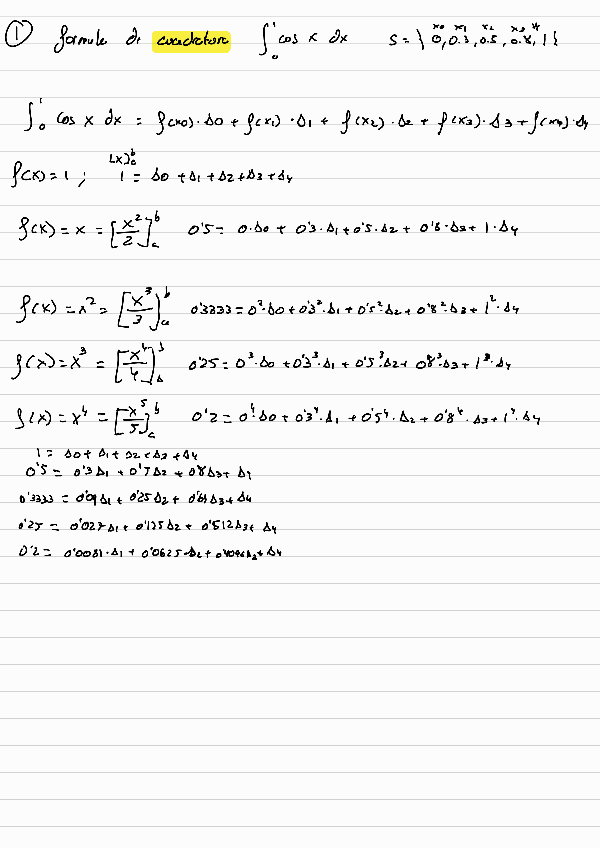 ① formula de cuadratura ∫₀¹ cos x dx S = { 0, 0.3, 0.5, 0.8, 1 } x0 x1 x2 x3 x4
∫₀¹ cos x dx = f(x0)·Δ0 + f(x1)·Δ1 + f(x2)·Δ2 + f(x3)·Δ3 + f(x4)·Δ4
f(x)=1 ; [x]ₐᵇ 1 = Δ0 + Δ1 + Δ2 + Δ3 + Δ4
f(x) = x = [x²/2]ₐᵇ 0'5 = 0·Δ0 + 0'3·Δ1 + 0'5·Δ2 + 0'8·Δ3 + 1·Δ4
f(x) = x² = [x³/3]ₐᵇ 0'3333 = 0²·Δ0 + 0'3²·Δ1 + 0'5²·Δ2 + 0'8²·Δ3 + 1²·Δ4
f(x) = x³ = [x⁴/4]ₐᵇ 0'25 = 0³·Δ0 + 0'3³·Δ1 + 0'5³·Δ2 + 0'8³·Δ3 + 1³·Δ4
f(x) = x⁴ = [x⁵/5]ₐᵇ 0'2 = 0⁴·Δ0 + 0'3⁴·Δ1 + 0'5⁴·Δ2 + 0'8⁴·Δ3 + 1⁴·Δ4
1 = Δ0 + Δ1 + Δ2 + Δ3 + Δ4
0'5 = 0'3Δ1 + 0'7Δ2 + 0'8Δ3 + Δ4
0'3333 = 0'09Δ1 + 0'25Δ2 + 0'64Δ3 + Δ4
0'25 = 0'027Δ1 + 0'125Δ2 + 0'512Δ3 + Δ4
0'2 = 0'0081·Δ1 + 0'0625·Δ2 + 0'4096Δ3 + Δ4